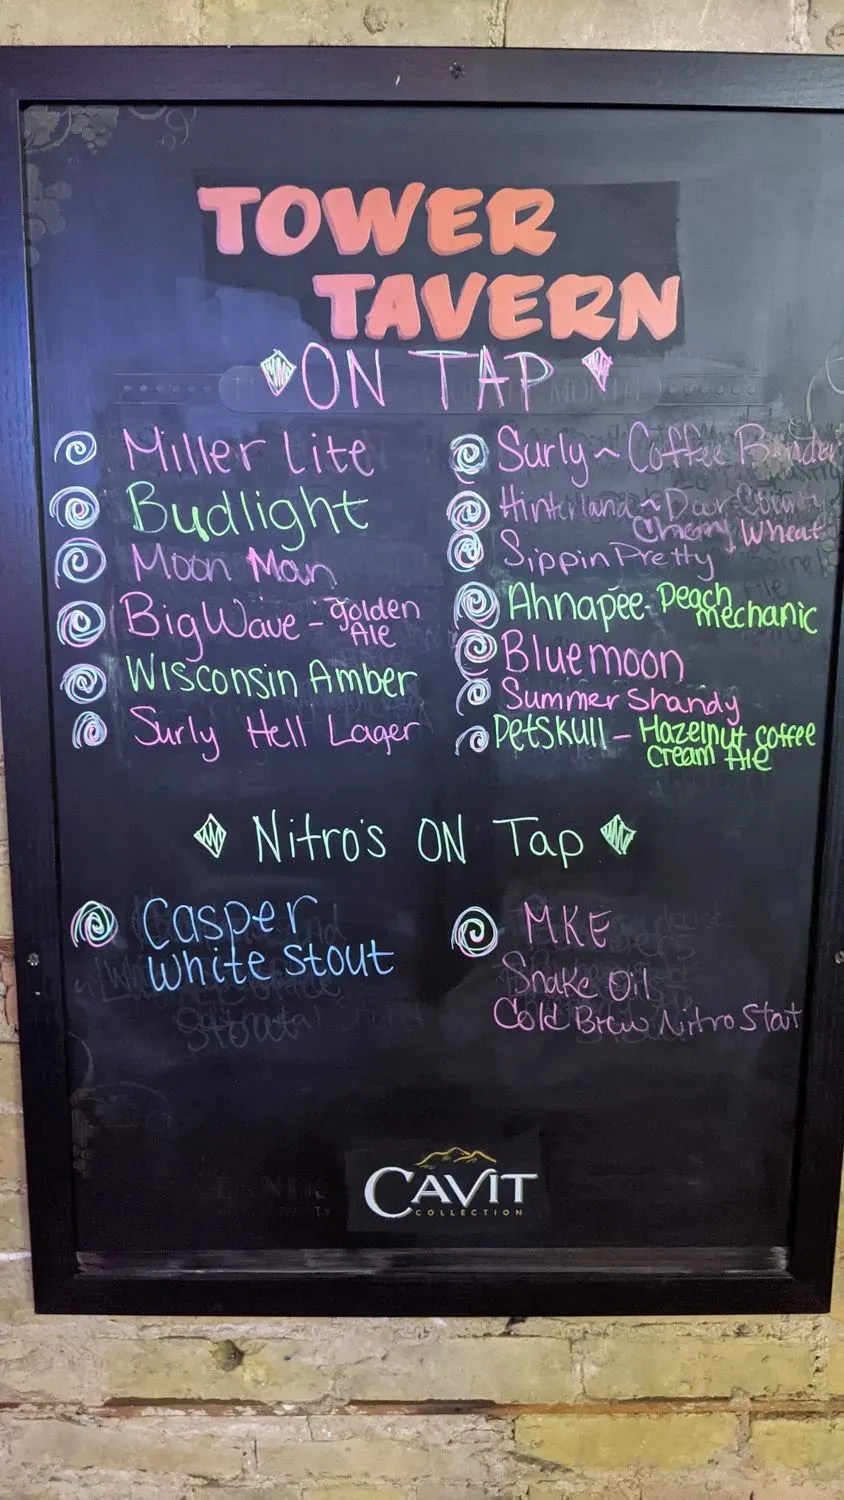 TOWER
TAVERN
ON TAP
Miller Lite
Budlight
Moon Man
Big Wave - golden
Ale
Wisconsin Amber
Surly Hell Lager
Surly ~ Coffee Bender
Hinterland ~ Door County
Cherry Wheat
Sippin Pretty
Ahnapee - Peach
mechanic
Bluemoon
Summer Shandy
Petskull - Hazelnut coffee
cream Ale
Nitro's ON Tap
Casper
White Stout
MKE
Snake Oil
Cold Brew Nitro Stout
CAVIT
COLLECTION